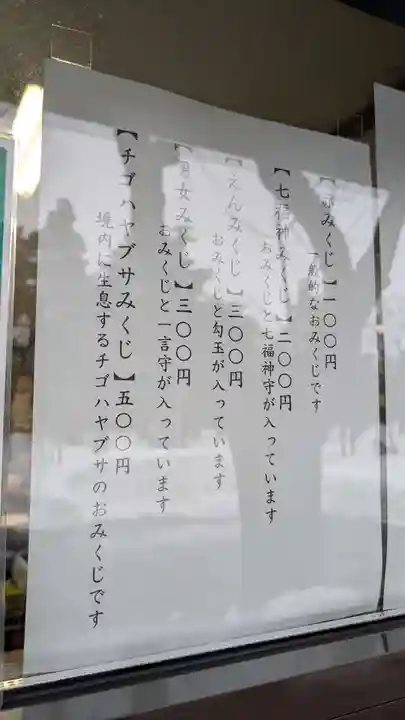 【おみくじ】一〇〇円
一般的なおみくじです
【七福神みくじ】二〇〇円
おみくじと七福神守が入っています
【えんみくじ】三〇〇円
おみくじと勾玉が入っています
【男女みくじ】三〇〇円
おみくじと一言守が入っています
【チゴハヤブサみくじ】五〇〇円
境内に生息するチゴハヤブサのおみくじです